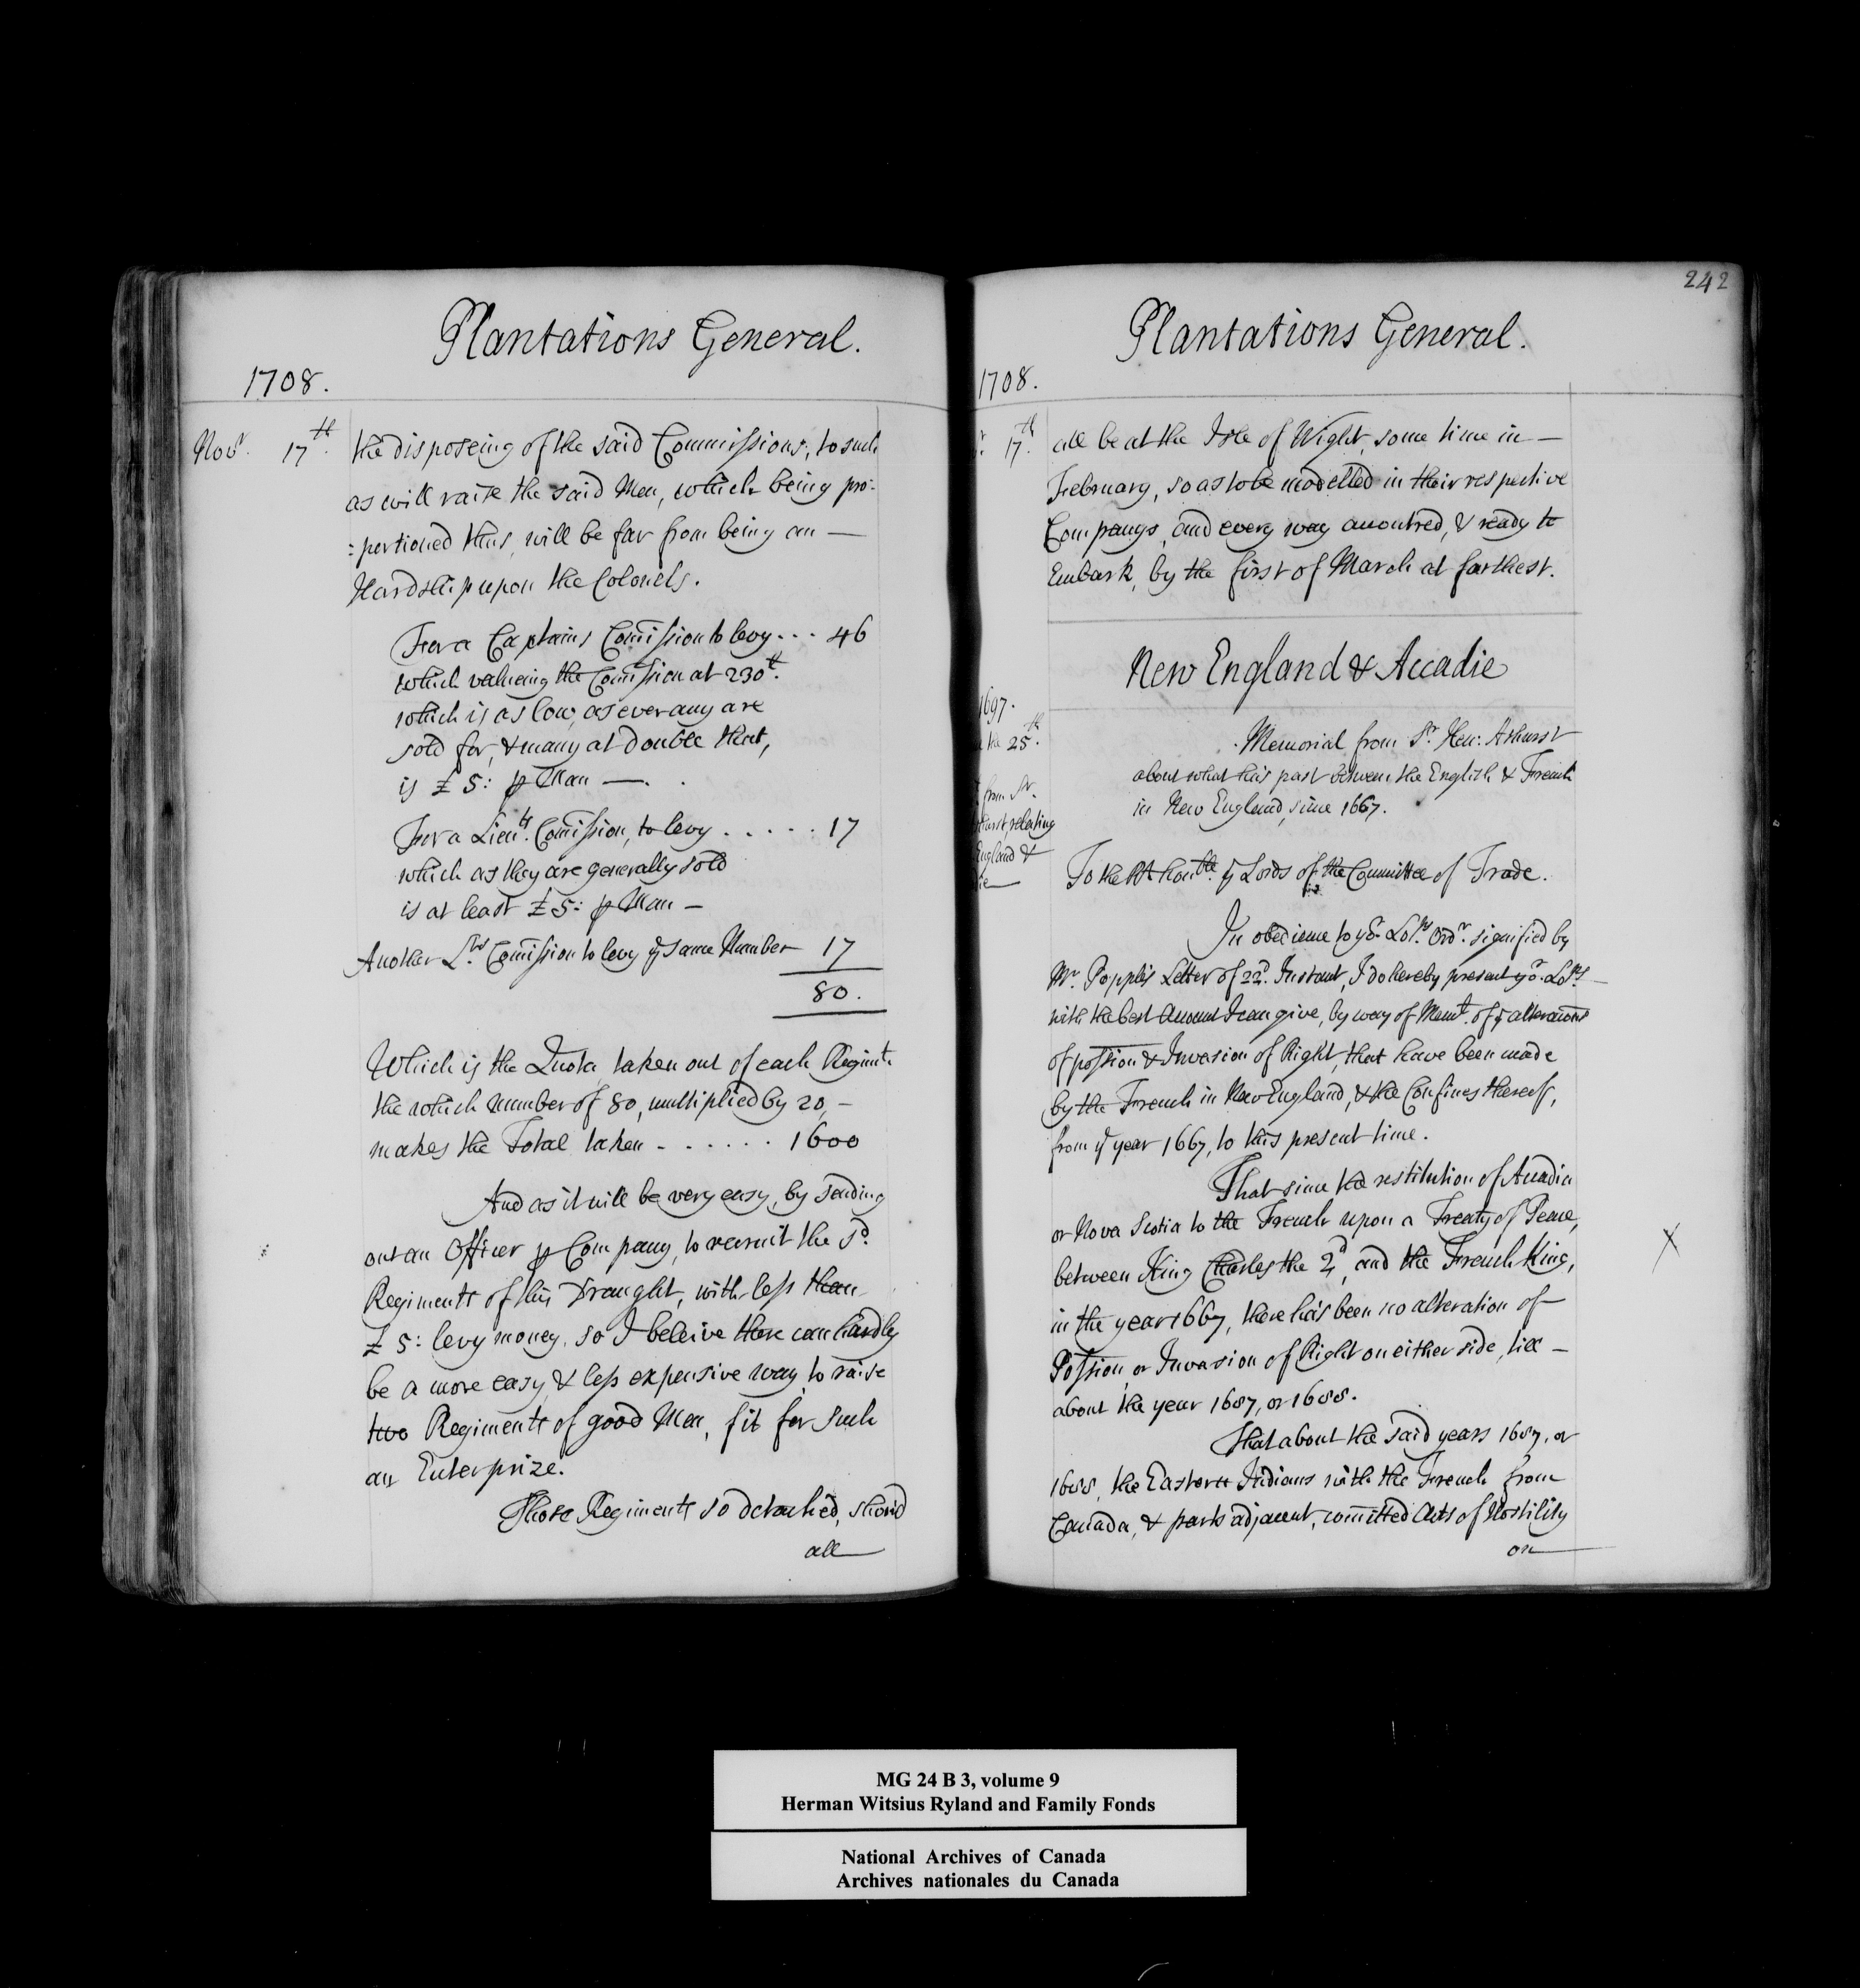 Plantations General.
1708.
Novr. 17th. the disposeing of the said Commissions, to such
as will raise the said Men, which being pro:
:portioned thus, will be far from being an —
Hardship upon the Colonels.
For a Captains Comission to levy . . . 46
which valueing the Comission at 230£.
which is as low, as ever any are
sold for, & many at double that,
is £ 5: ℘ Man —
For a Lieuts. Comission, to levy . . . . . 17
which as they are generally sold
is at least £ 5: ℘ Man —
Another Lts. Comission to levy ye same Number 17
80.
Which is the Quota taken out of each Regimt.
the which number of 80, multiplied by 20, —
makes the Total taken . . . . . . 1600
And as it will be very easy, by sending
out an Officer ℘ Company, to recruit the sd.
Regiments of this Draught, with less than
£ 5: levy money, so I beleive there can hardly
be a more easy, & less expensive way, to raise
two Regiments of good Men, fit for such
an Enterprize.
Those Regiments so detached, should
all
242
Plantations General.
1708.
17th. all be at the Isle of Wight, some time in —
February, so as to be modelled in their respective
Companys, and every way accoutred, & ready to
Embark, by the first of March at farthest.
New England & Accadie
1697.
the 25th.
from Sr.
relating
England &
Memorial from Sr. Hen: Ashurst
about what has past between the English & French
in New England, since 1667.
To the Rt. honble. ye Lords of the Committee of Trade.
In obedience to yor. Lops. Ordr. signified by
Mr. Popple's Letter of 22d. Instant, I do hereby present yor. Lops.
with the best Account I can give, by way of Memd. of ye alteracions
of possion & Invasion of Right, that have been made
by the French in New England, & the Confines thereof,
from ye year 1667, to this present time.
That since the restitution of Accadia
or Nova Scotia to the French upon a Treaty of Peace,
between King Charles the 2d, and the French King,
in the year 1667, there has been no alteration of
Possion, or Invasion of Right on either side, till —
about the year 1687, or 1688.
That about the said years 1687, or
1688, the Eastern Indians with the French from
Canada, & parts adjacent, comitted Acts of Hostility
on
X
MG 24 B 3, volume 9
Herman Witsius Ryland and Family Fonds
National Archives of Canada
Archives nationales du Canada